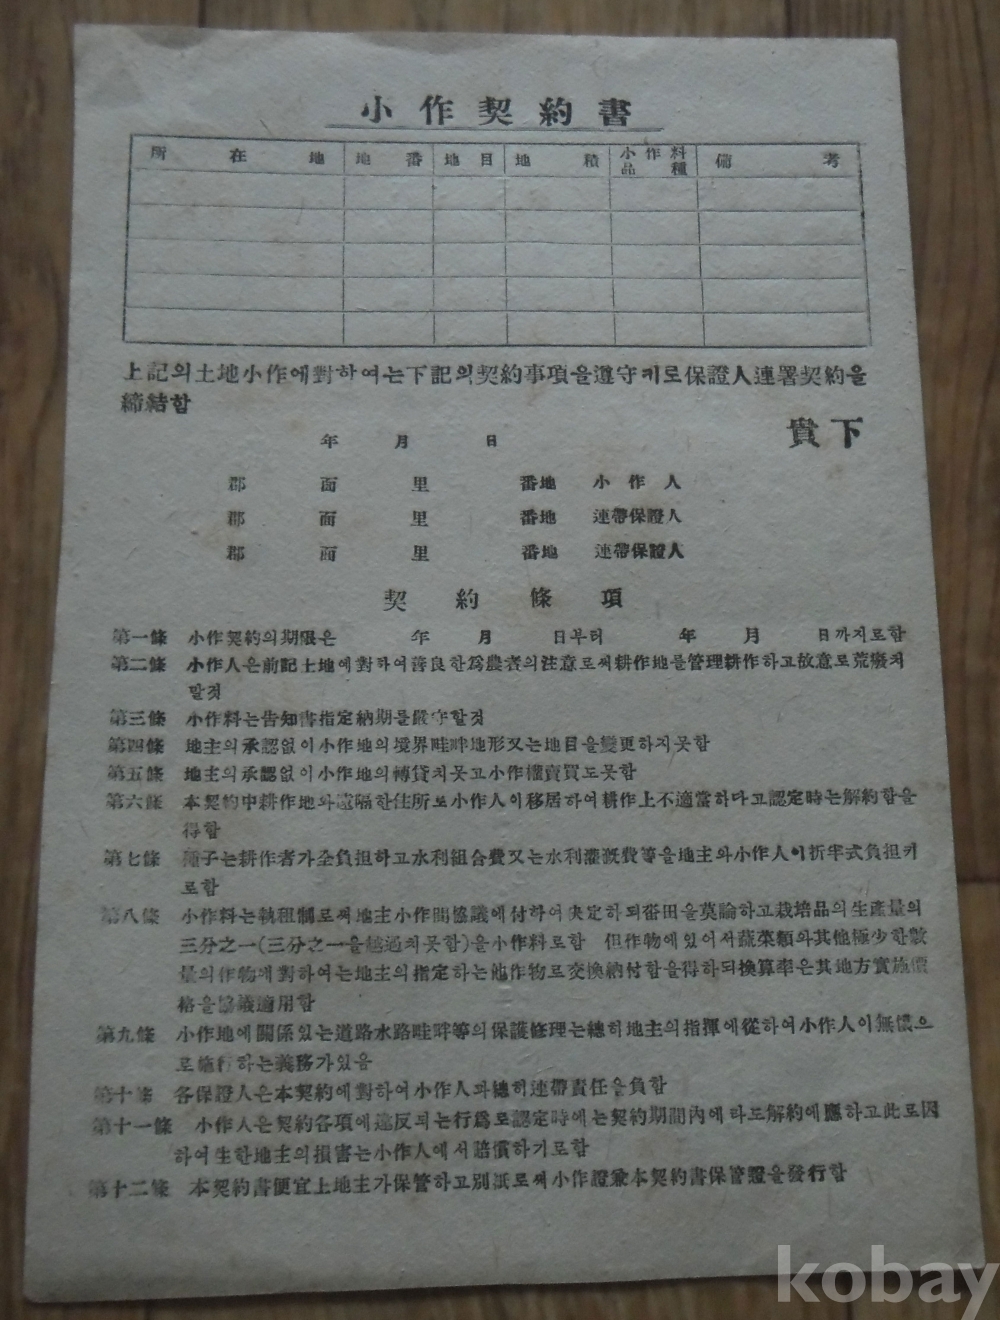 小作契約書
所在地 地番 地目 地積 小作料品種 備考
上記의土地小作에對하여는下記의契約事項을遵守키로保證人連署契約을
締結함
貴下
年 月 日
郡 面 里 番地 小作人
郡 面 里 番地 連帶保證人
郡 面 里 番地 連帶保證人
契約條項
第一條 小作契約의期限은 年 月 日부터 年 月 日까지로함
第二條 小作人은前記土地에對하여善良한爲農者의注意로써耕作地를管理耕作하고故意로荒廢치
말것
第三條 小作料는告知書指定納期를嚴守할것
第四條 地主의承認없이小作地의境界畦畔地形又는地目을變更하지못함
第五條 地主의承認없이小作地의轉貸치못고小作權賣買도못함
第六條 本契約中耕作地와遠隔한住所로小作人이移居하여耕作上不適當하다고認定時는解約함을
得함
第七條 種子는耕作者가全負担하고水利組合費又는水利灌漑費等을地主와小作人이折半式負担키
로함
第八條 小作料는執租制로써地主小作間協議에付하여決定하되畓田을莫論하고栽培品의生産量의
三分之一(三分之一을越過치못함)을小作料로함 但作物에있어서蔬菜類와其他極少한數
量의作物에對하여는地主의指定하는他作物로交換納付함을得하되換算率은其地方實施價
格을協議適用함
第九條 小作地에關係있는道路水路畦畔等의保護修理는總히地主의指揮에從하여小作人이無償으
로施行하는義務가있음
第十條 各保證人은本契約에對하여小作人과總히連帶責任을負함
第十一條 小作人은契約各項에違反되는行爲로認定時에는契約期間內에라도解約에應하고此로因
하여生한地主의損害는小作人에서賠償하기로함
第十二條 本契約書便宜上地主가保管하고別紙로써小作證兼本契約書保管證을發行함
kobay